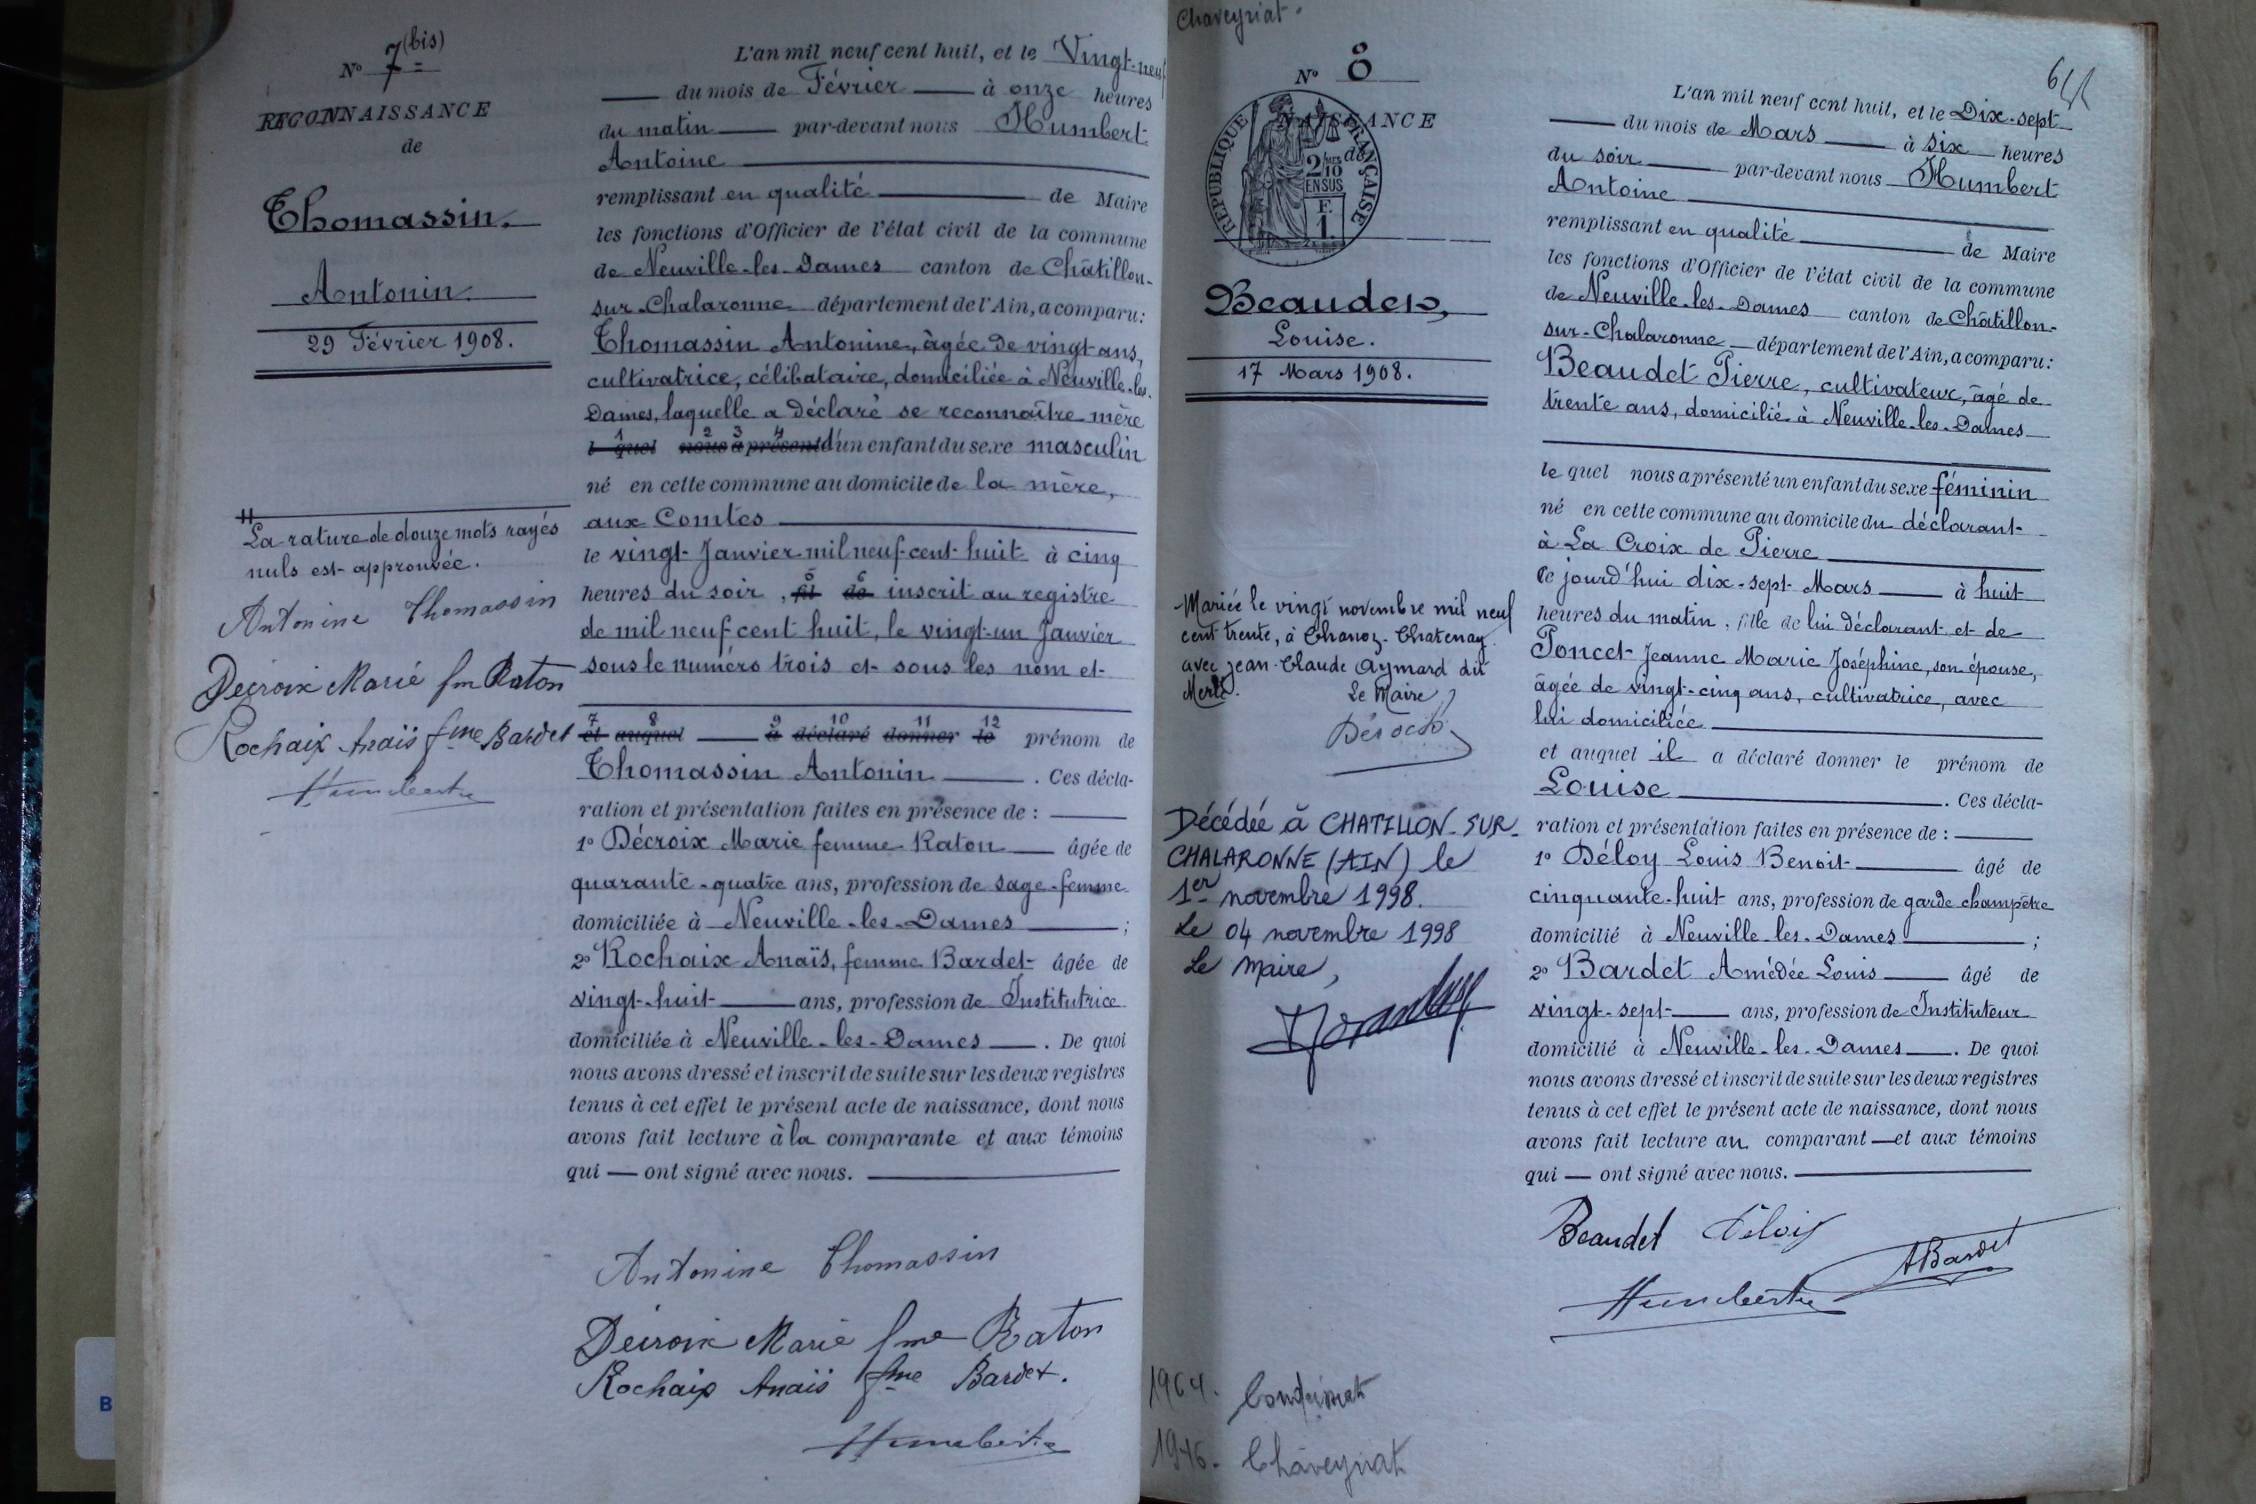 N° 7 (bis)
RECONNAISSANCE
de
Thomassin,
Antonin.
29 Février 1908.
La rature de douze mots rayés
nuls est approuvée.
Antonine Thomassin
Décroix Marie fme Raton
Rochaix Anaïs fme Bardet
Humbert
L'an mil neuf cent huit, et le Vingt-neuf
du mois de Février à onze heures
du matin par-devant nous Humbert
Antoine
remplissant en qualité de Maire
les fonctions d'Officier de l'état civil de la commune
de Neuville-les-Dames canton de Châtillon-
sur-Chalaronne département de l'Ain, a comparu:
Thomassin Antonine, âgée de vingt ans,
cultivatrice, célibataire, domiciliée à Neuville-les-
Dames, laquelle a déclaré se reconnaître mère
1 2 3 4
l quel nous a présenté d'un enfant du sexe masculin
né en cette commune au domicile de la mère,
aux Comtes
le vingt Janvier mil neuf cent huit à cinq
5 6
heures du soir, fil de inscrit au registre
de mil neuf cent huit, le vingt-un Janvier
sous le numéro trois et sous les nom et
7 8 9 10 11 12
et auquel a déclaré donner le prénom de
Thomassin Antonin. Ces décla-
ration et présentation faites en présence de :
1° Décroix Marie femme Raton âgée de
quarante-quatre ans, profession de sage-femme
domiciliée à Neuville-les-Dames ;
2° Rochaix Anaïs, femme Bardet âgée de
vingt-huit ans, profession de Institutrice
domiciliée à Neuville-les-Dames. De quoi
nous avons dressé et inscrit de suite sur les deux registres
tenus à cet effet le présent acte de naissance, dont nous
avons fait lecture à la comparante et aux témoins
qui — ont signé avec nous.
Antonine Thomassin
Décroix Marie fme Raton
Rochaix Anaïs fme Bardet.
Humbert
Chaveyriat.
N° 8
NAISSANCE
de
RÉPUBLIQUE FRANÇAISE
2/10
EN SUS
F.
1.
Beaudet,
Louise.
17 Mars 1908.
Mariée le vingt novembre mil neuf
cent trente, à Chanoz-Chatenay
avec Jean-Claude Aymard dit
Merle.
Le Maire,
Décédée à CHATILLON-SUR-
CHALARONNE (AIN) le
1er novembre 1998.
Le 04 novembre 1998
Le Maire,
1964. Condeissiat
1946. Chaveyriat
L'an mil neuf cent huit, et le Dix-sept
du mois de Mars à six heures
du soir par-devant nous Humbert
Antoine
remplissant en qualité de Maire
les fonctions d'Officier de l'état civil de la commune
de Neuville-les-Dames canton de Châtillon-
sur-Chalaronne département de l'Ain, a comparu:
Beaudet Pierre, cultivateur, âgé de
trente ans, domicilié à Neuville-les-Dames
le quel nous a présenté un enfant du sexe féminin
né en cette commune au domicile du déclarant
à La Croix de Pierre
ce jourd'hui dix-sept Mars à huit
heures du matin, fille de lui déclarant et de
Poncet Jeanne Marie Joséphine, son épouse,
âgée de vingt-cinq ans, cultivatrice, avec
lui domiciliée
et auquel il a déclaré donner le prénom de
Louise. Ces décla-
ration et présentation faites en présence de :
1° Déloy Louis Benoit âgé de
cinquante-huit ans, profession de garde champêtre
domicilié à Neuville-les-Dames ;
2° Bardet Amédée Louis âgé de
vingt-sept ans, profession de Instituteur
domicilié à Neuville-les-Dames. De quoi
nous avons dressé et inscrit de suite sur les deux registres
tenus à cet effet le présent acte de naissance, dont nous
avons fait lecture au comparant et aux témoins
qui — ont signé avec nous.
Beaudet Déloy
ABardet
Humbert
B